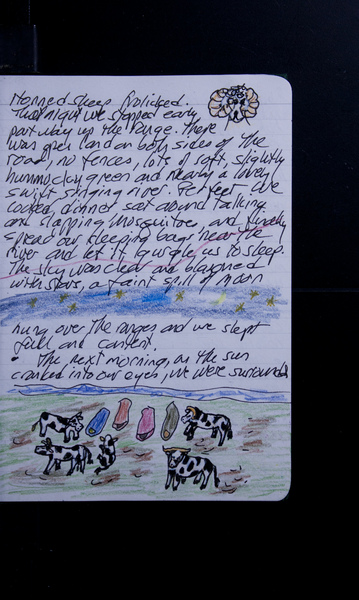 Horned sheep frolicked.
That night we stopped early
part way up the range. There
was open land on both sides of the
road, no fences, lots of soft, slightly
hummocky green and nearby a lovely
swift singing river. Perfect. We
cooked dinner sat around talking
and slapping mosquitoes, and finally
spread our sleeping bags near the
river and let it gurgle us to sleep.
The sky was clear and blazoned
with stars, a faint spill of moon
hung over the ranges and we slept
full and content.
The next morning, as the sun
cranked into our eyes, we were surrounded